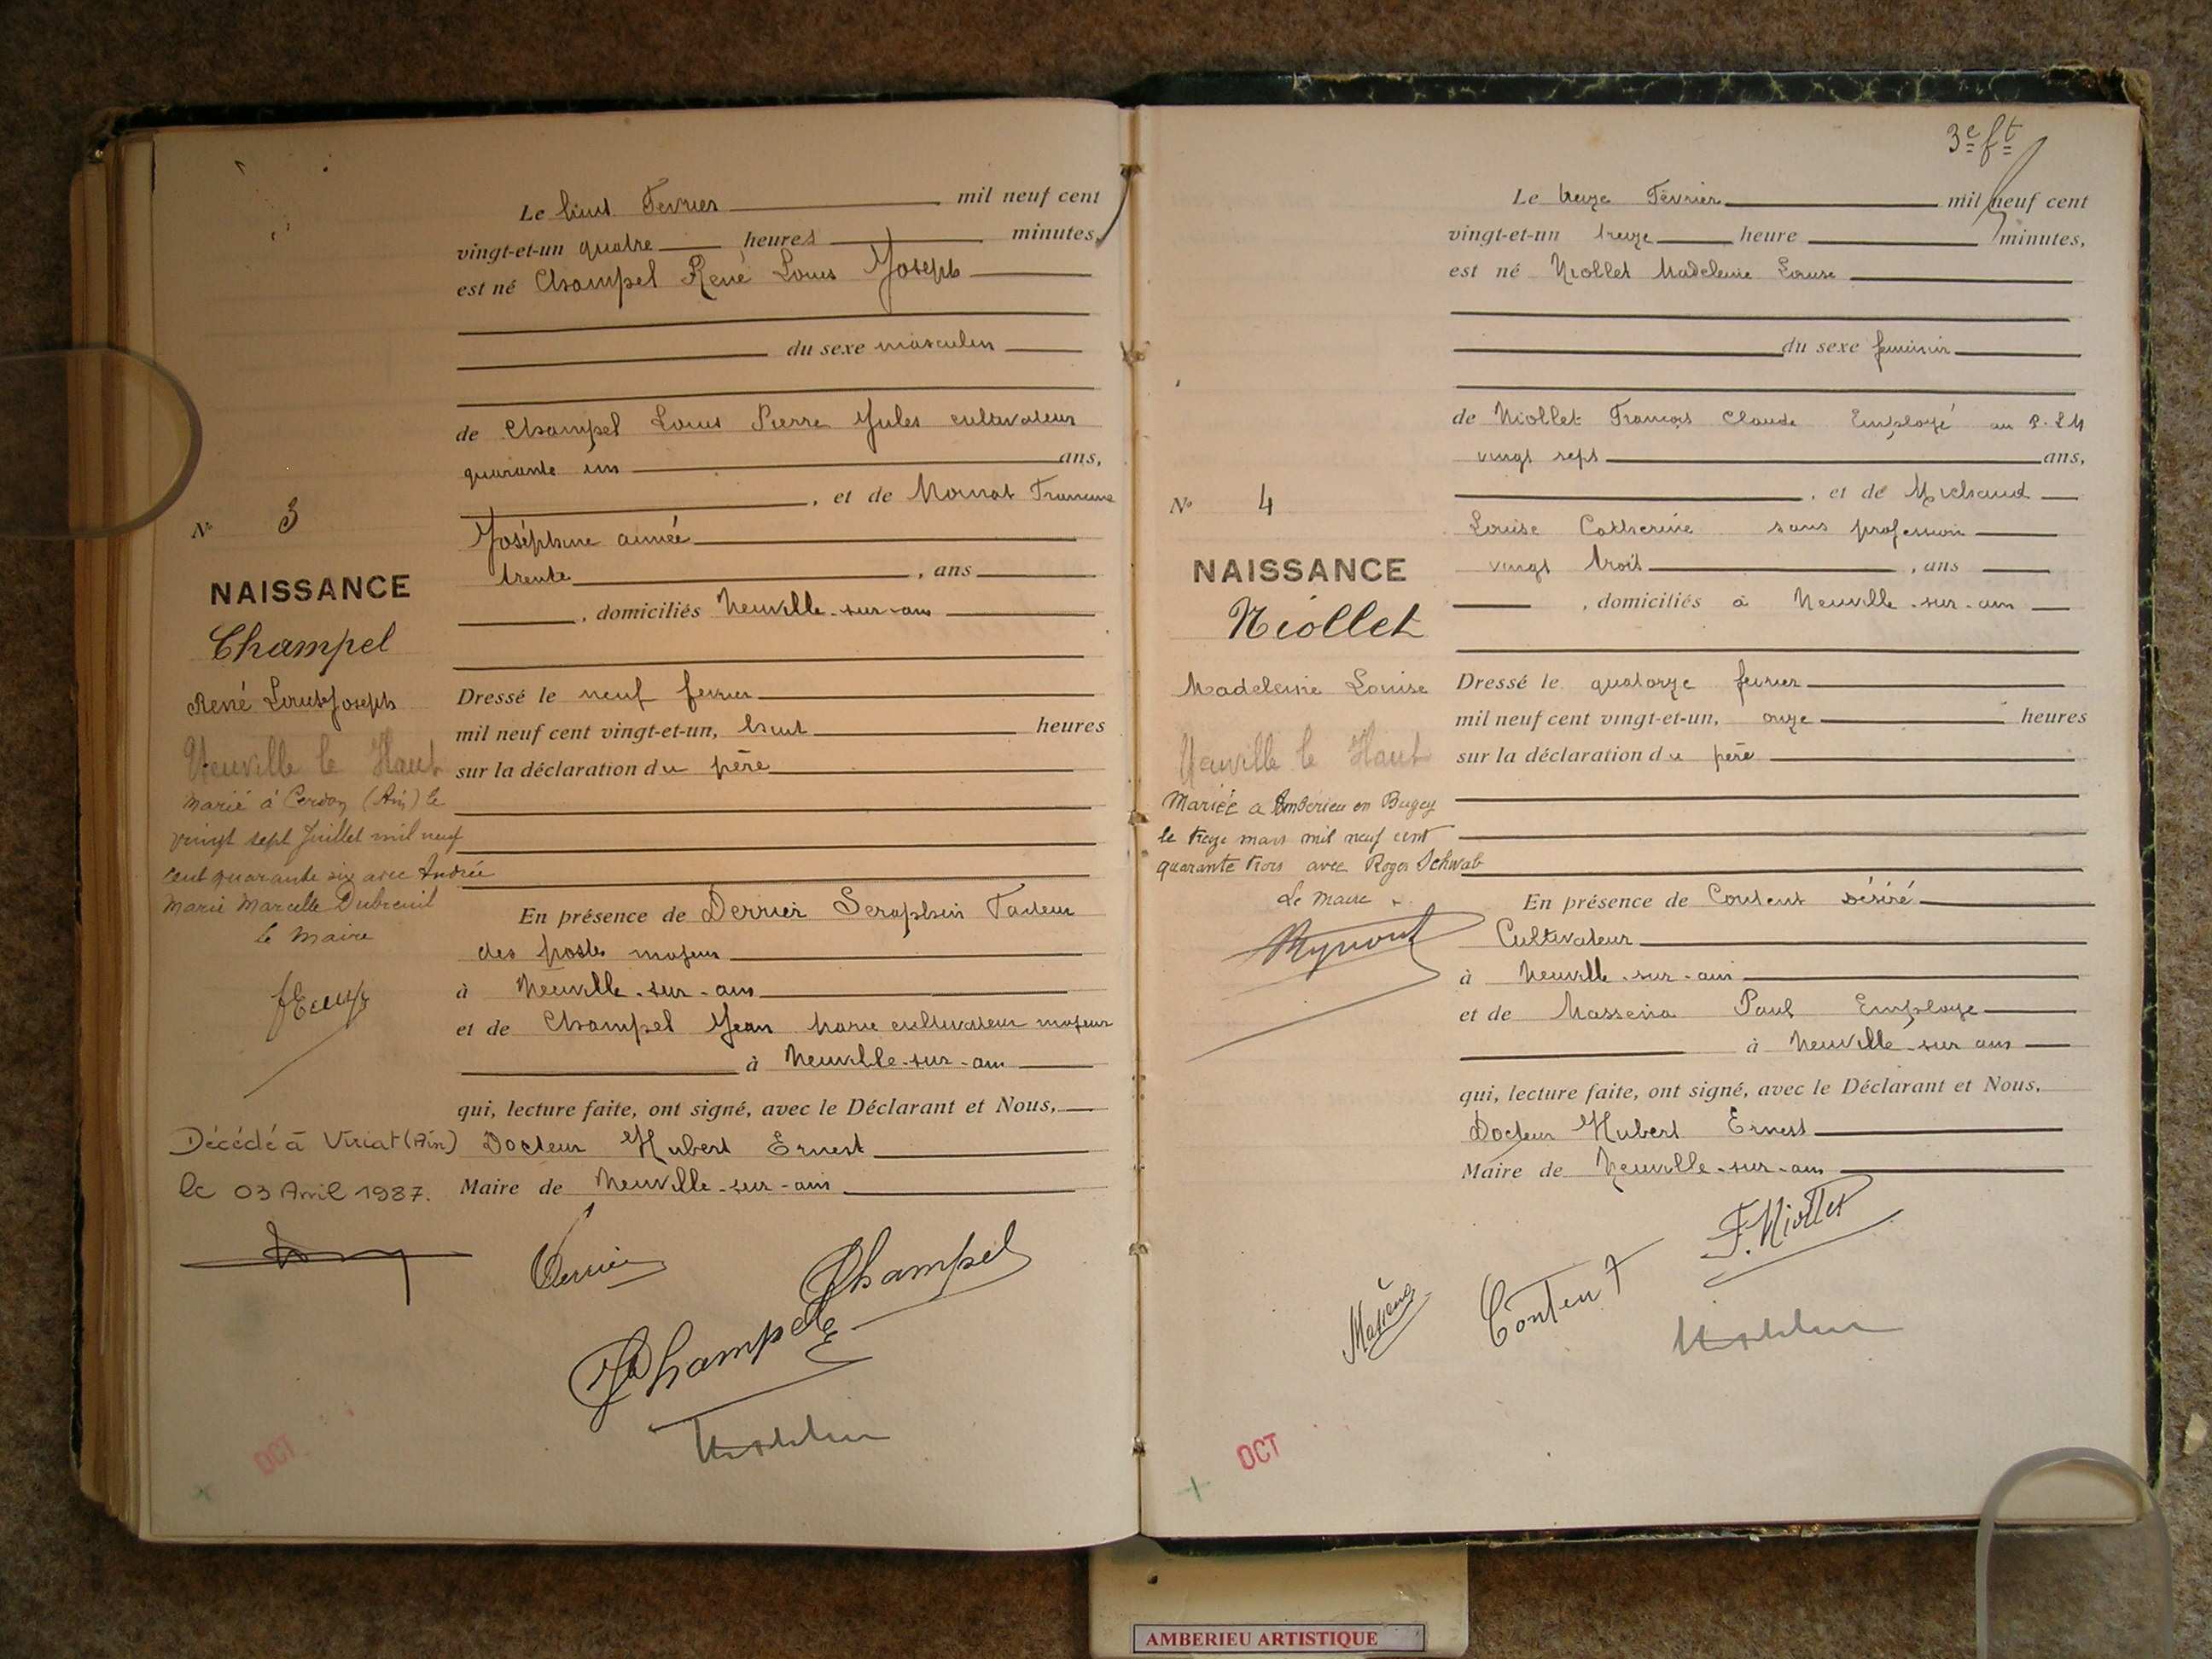 Le huit Fevrier mil neuf cent
vingt-et-un quatre heures minutes,
est né Champel René Louis Joseph
du sexe masculin
de Champel Louis Pierre Jules cultivateur
quarante un ans,
, et de Mornat Francine
Joséphine aimée
trente , ans
, domiciliés Neuville-sur-ain
Dressé le neuf fevrier
mil neuf cent vingt-et-un, huit heures
sur la déclaration du père
En présence de Derrier Seraphin Facteur
des postes majeur
à Neuville-sur-ain
et de Champel Jean Marie cultivateur majeur
à Neuville-sur-ain
qui, lecture faite, ont signé, avec le Déclarant et Nous,
Docteur Hubert Ernest
Maire de Neuville-sur-ain
Derrier
Champel
JChampel
No 3
NAISSANCE
Champel
René Louis Joseph
Neuville le Haut
Marié à Cerdon (Ain) le
vingt sept Juillet mil neuf
cent quarante six avec Andrée
Marie Marcelle Dubreuil
le Maire
Décédé à Viriat (Ain)
le 03 Avril 1987.
OCT
3e ft
Le treize Février mil neuf cent
vingt-et-un treize heure minutes,
est né Niollet Madeleine Louise
du sexe feminin
de Niollet François Claude Employé au P.L.M
vingt sept ans,
, et de Michaud
Louise Catherine sans profession
vingt trois , ans
, domiciliés à Neuville-sur-ain
Dressé le quatorze fevrier
mil neuf cent vingt-et-un, onze heures
sur la déclaration du père
En présence de Content Désiré
Cultivateur
à Neuville-sur-ain
et de Massena Paul Employe
à Neuville-sur ain
qui, lecture faite, ont signé, avec le Déclarant et Nous,
Docteur Hubert Ernest
Maire de Neuville-sur-ain
F. Niollet
Content
Massena
No 4
NAISSANCE
Niollet
Madeleine Louise
Neuville le Haut
Mariée a Ambérieu en Bugey
le treize mars mil neuf cent
quarante trois avec Roger Schwab
Le Maire
OCT
AMBERIEU ARTISTIQUE